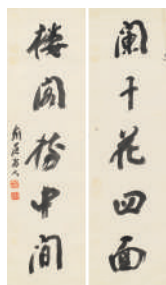 闌干花四面
樓閣樹中間